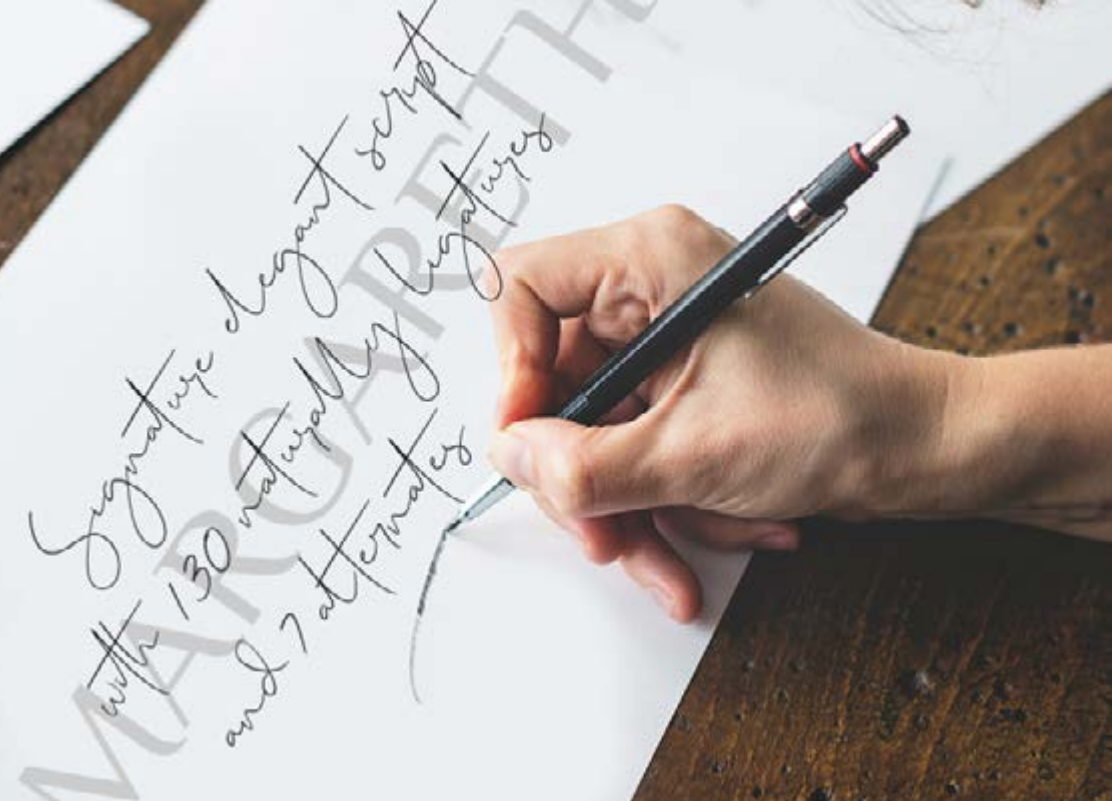 Signature elegant script
with 130 naturally ligatures
and 7 alternates
MARGARETH